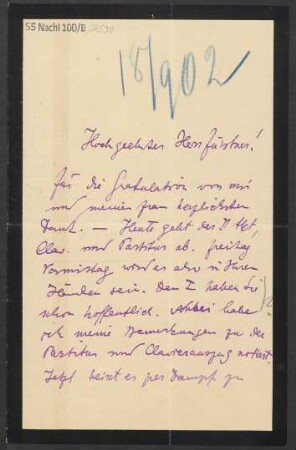 55 Nachl 100/B
18/902
Hochgeehrter Herr Fürstner!
für die Gratulation von mir
und meiner Frau herzlichsten
Dank. — Heute geht der II. Akt,
Clav. und Partitur ab. Freitag
Vormittag wird es also in Ihren
Händen sein. Den I. haben Sie
schon hoffentlich. Anbei habe
ich meine Bemerkungen zu der
Partitur und Clavierauszug notiert.
Jetzt heisst es per Dampf zu